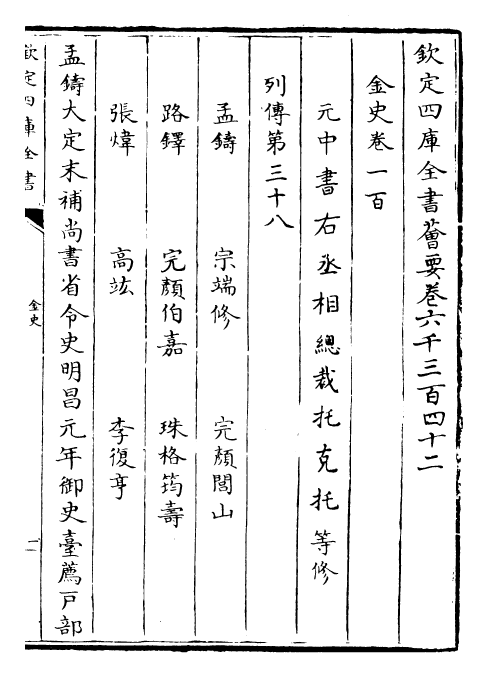 欽定四庫全書薈要卷六千三百四十二
金史卷一百
元中書右丞相總裁托克托等修
列傳第三十八
孟鑄 宗端修 完顏閭山
路鐸 完顏伯嘉 珠格筠壽
張煒 高竑 李復亨
孟鑄大定末補尚書省令史明昌元年御史臺薦戶部
欽定四庫全書
金史
一